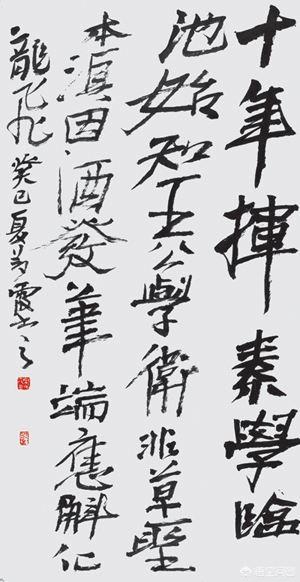 十年揮素學臨
池始知王公學衛非草聖
本湏因酒發筆端應解化
龍飛 癸巳夏
悟空问答